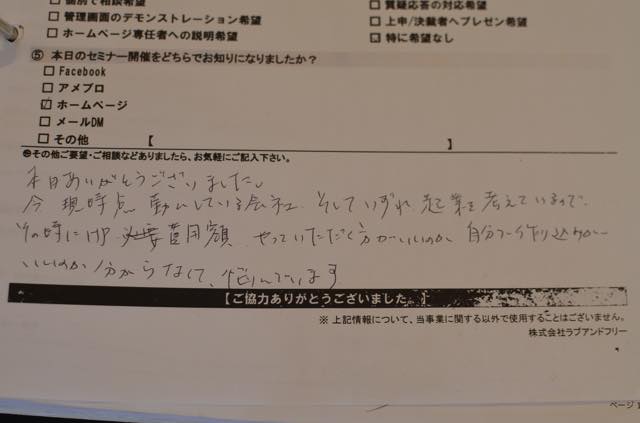 □ 個別で相談希望 □ 質疑応答の対応希望
□ 管理画面のデモンストレーション希望 □ 上申/決裁者へプレゼン希望
□ ホームページ専任者への説明希望 ☑ 特に希望なし
⑤ 本日のセミナー開催をどちらでお知りになりましたか？
□ Facebook
□ アメブロ
☑ ホームページ
□ メールDM
□ その他 【 】
その他ご要望・ご相談などありましたら、お気軽にご記入下さい。
本日ありがとうございました。
今現時点 勤ムしている会社、そしていずれ起業を考えているので、
その時にHP 費用額 やっていただく方がいいのか、自分で作り込む方が
いいのか分からなくて、悩んでいます
【ご協力ありがとうございました。】
※ 上記情報について、当事業に関する以外で使用することはございません。
株式会社ラブアンドフリー
ページ 1